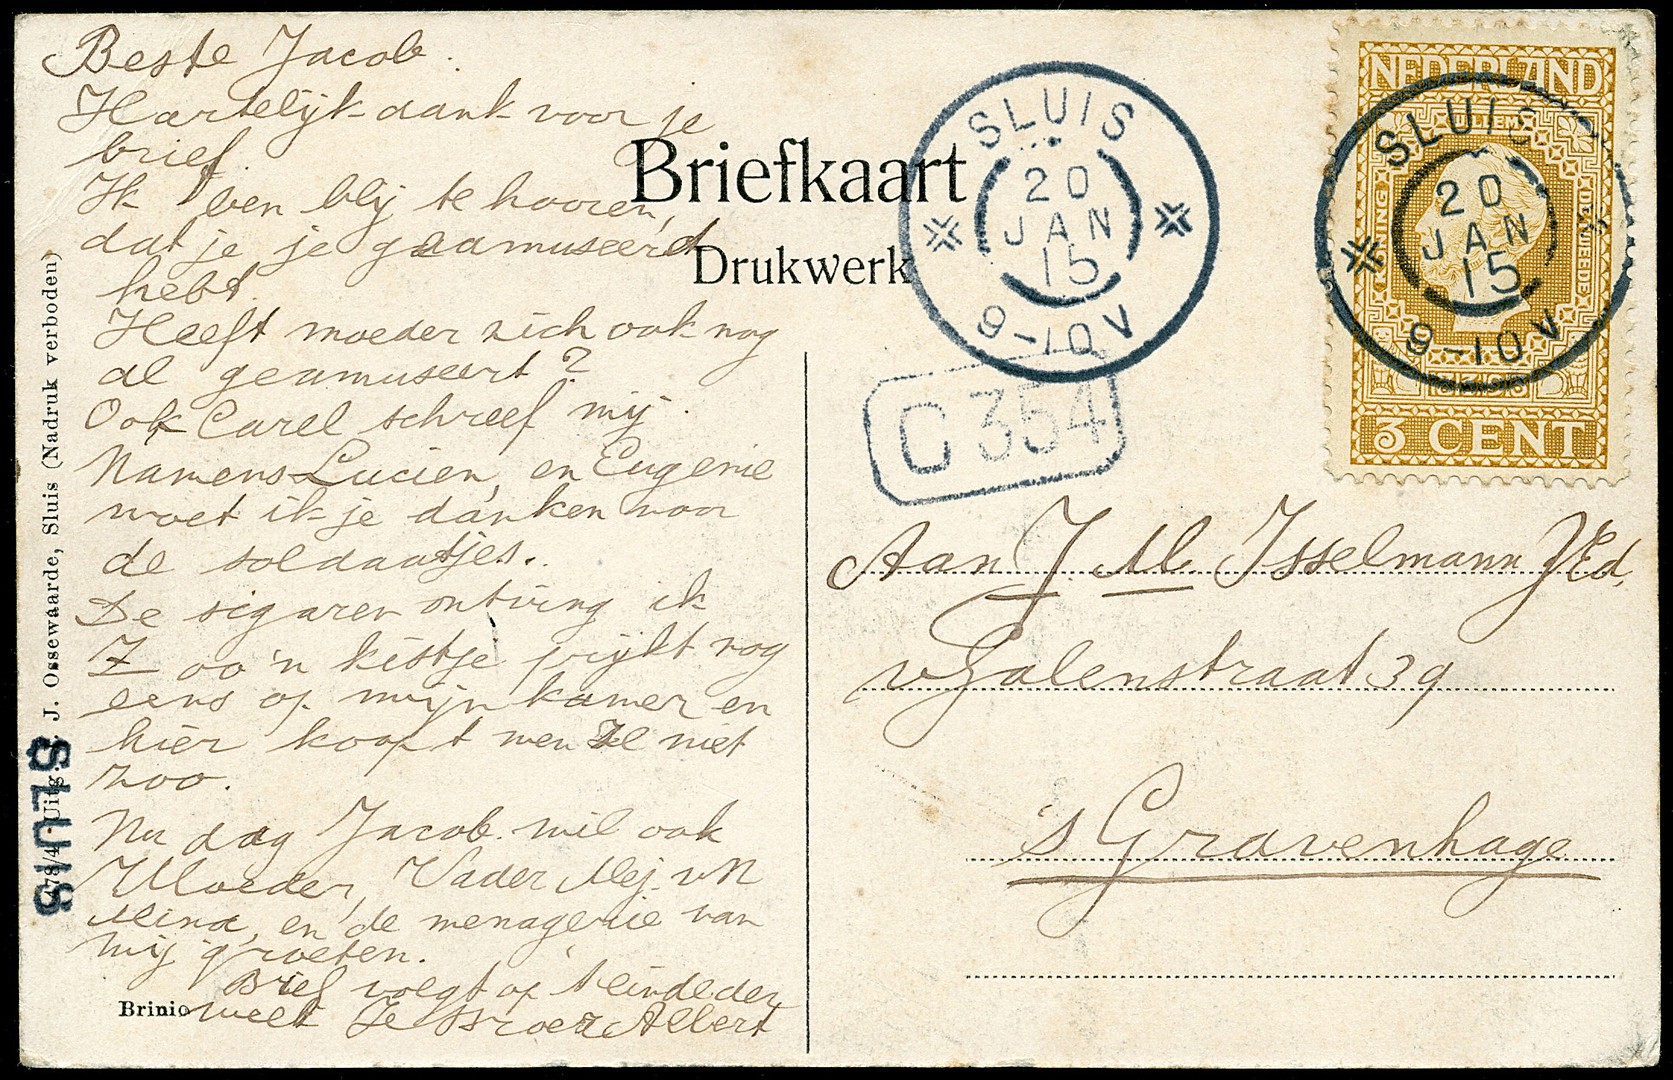 Beste Jacob.
Hartelijk dank voor je
brief.
Ik ben blij te hooren,
dat je je geamuseerd
hebt.
Heeft moeder zich ook nog
al geamuseert?
Ook Carel schreef mij.
Namens Lucien, en Eugenie
moet ik je danken voor
de soldaatjes.
De sigaren ontving ik
Zoo'n kistje prijkt nog
eens op mijn kamer en
hier koopt men ze niet
zoo.
Nu dag Jacob wil ook
Moeder, Vader Mej. v N
Mina, en de menagerie van
mij groeten.
Brief volgt op 't einde der
week Je Broer Albert
Briefkaart
Drukwerk
SLUIS
20
JAN
15
9-10V
C 354
NEDERLAND
WILLEM I
KONING
1813
3 CENT
SLUIS
20
JAN
15
9-10V
Aan J. M. IJsselmann JEd.
v Galenstraat 39
's Gravenhage
Uitg. J. Ossewaarde, Sluis (Nadruk verboden)
SLUIS
Brinio